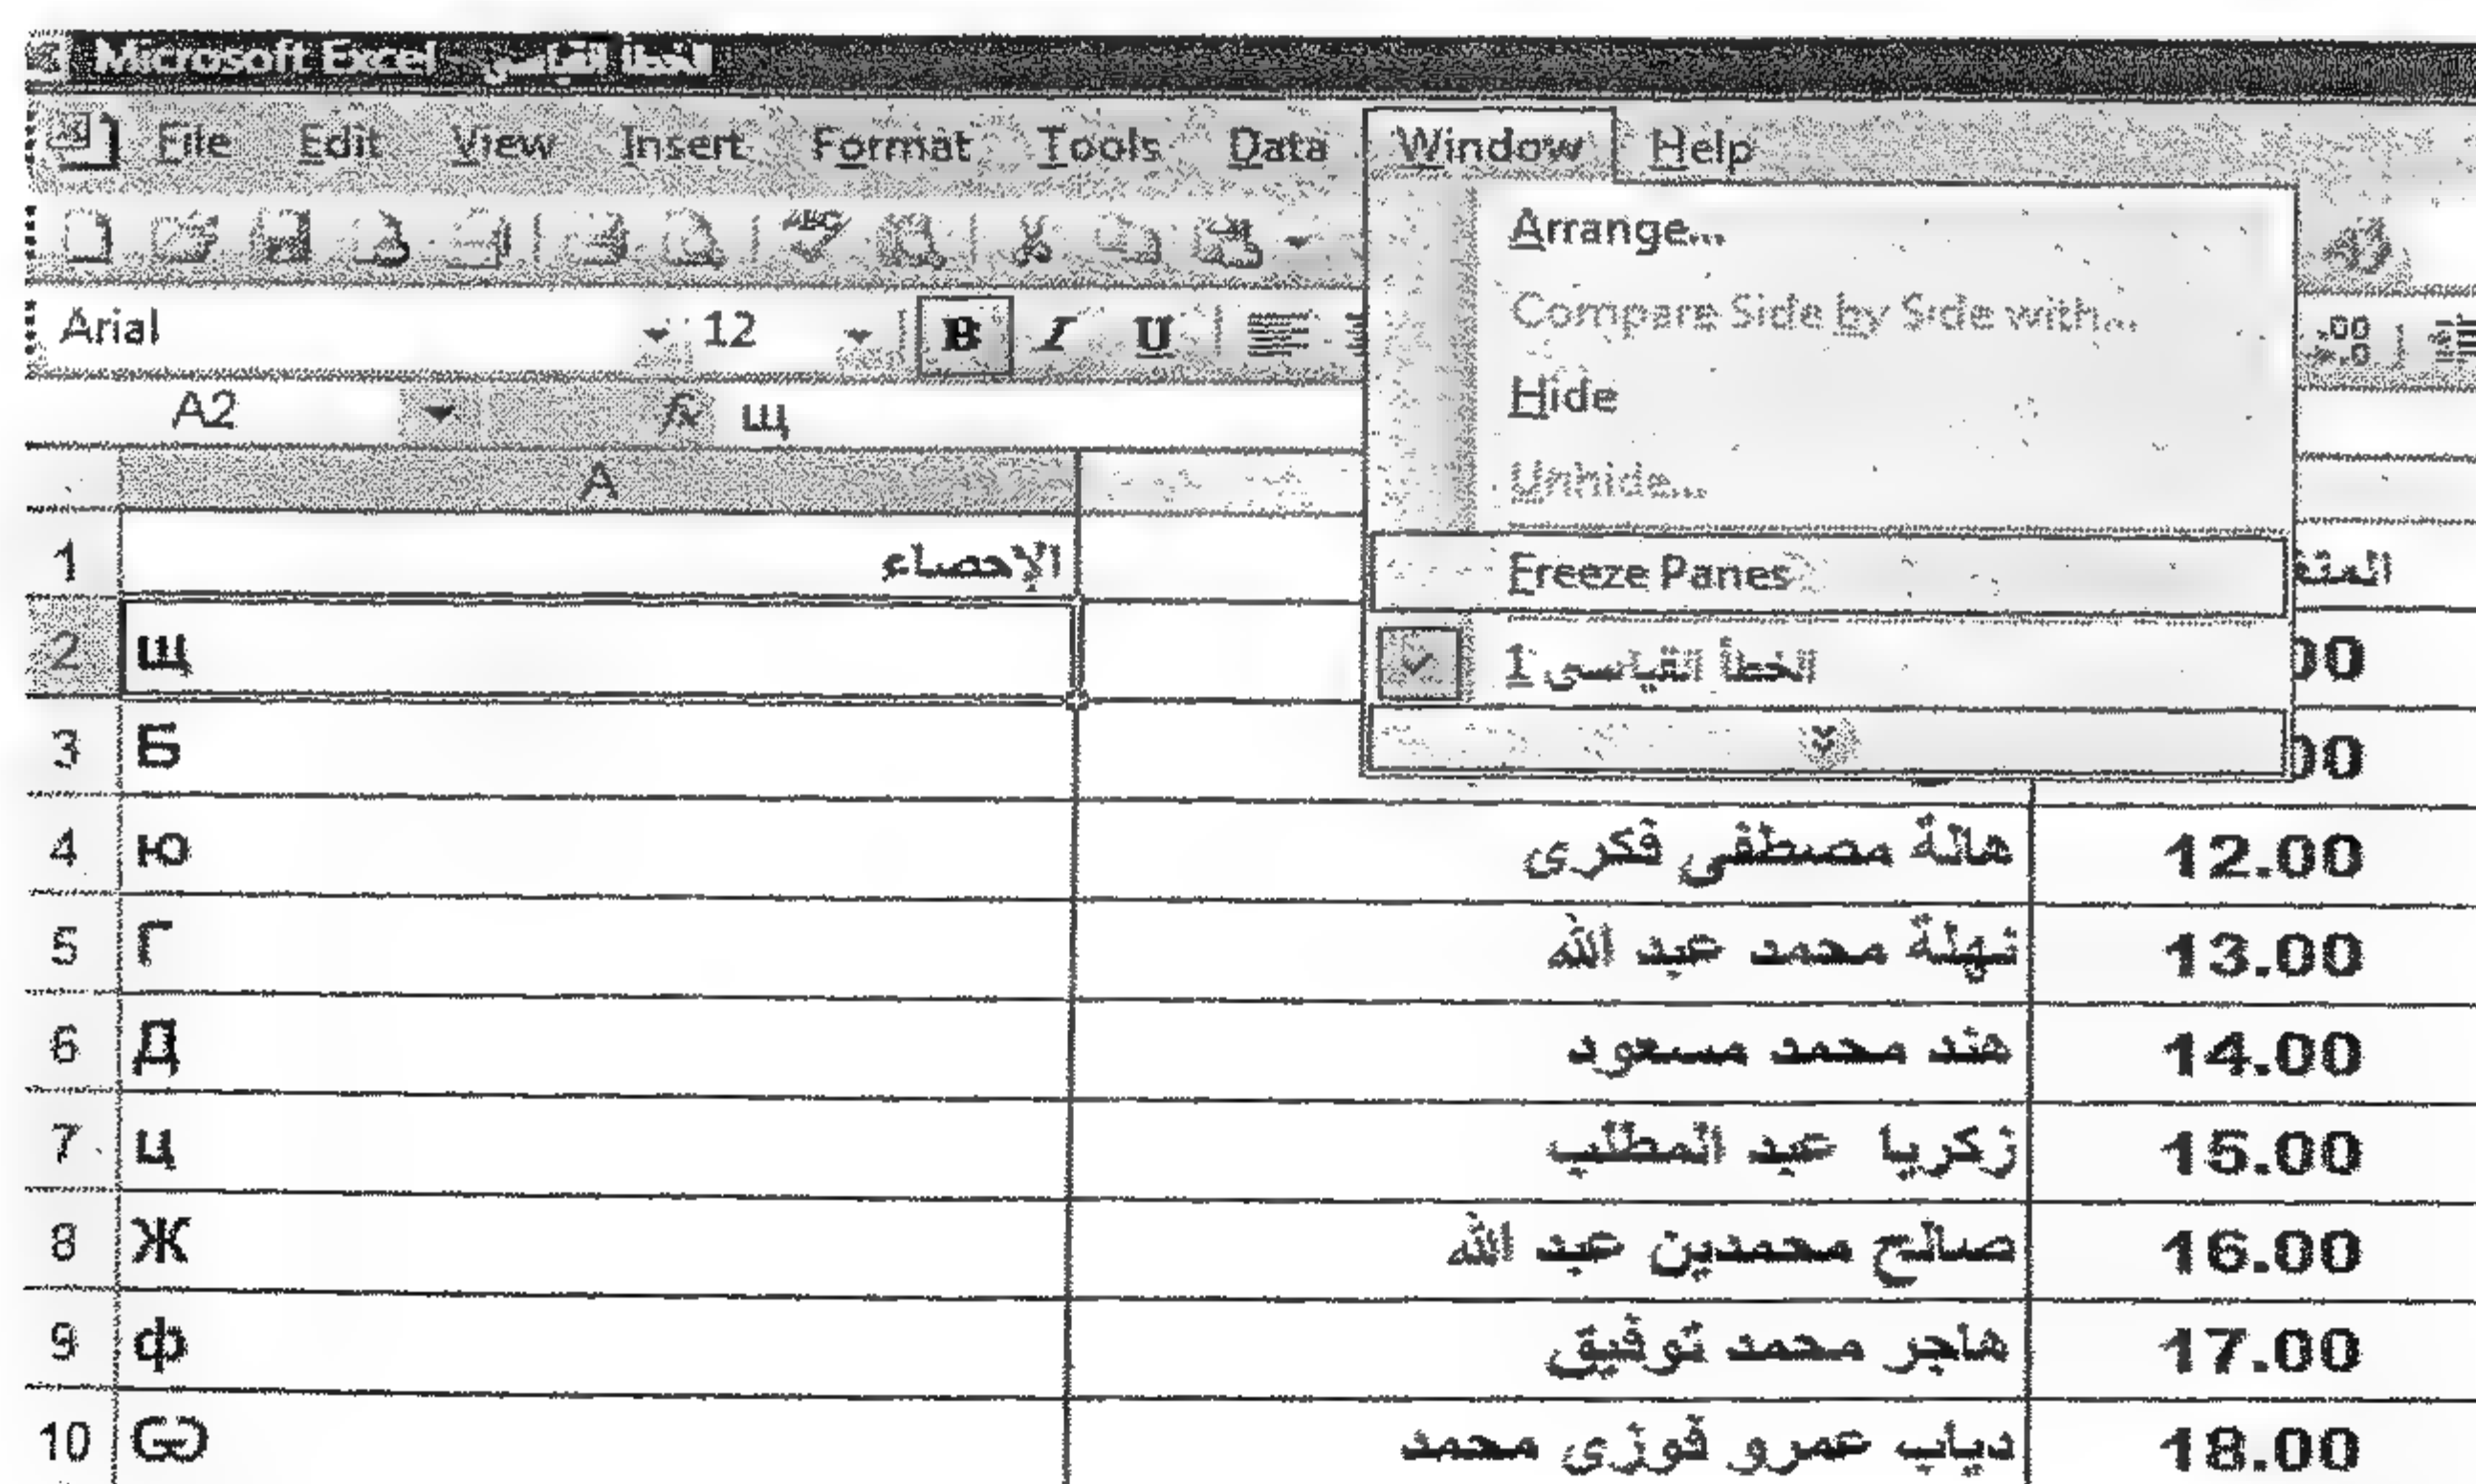 Microsoft Excel - الخطأ القياسى
File Edit View Insert Format Tools Data Window Help
Arrange...
Arial 12 B I U
Compare Side by Side with...
.00 .0
A2 fx щ
Hide
A
Unhide...
1 الإحصاء
Freeze Panes
2 щ 00
1 الخطأ القياسى
3 Б 00
4 ю هالة مصطفى فكرى 12.00
5 Г نهلة محمد عبد الله 13.00
6 Д هند محمد مسعود 14.00
7 ц زكريا عبد المطلب 15.00
8 Ж صالح محمدين عبد الله 16.00
9 ф هاجر محمد توفيق 17.00
10 Ѿ دياب عمرو فوزى محمد 18.00